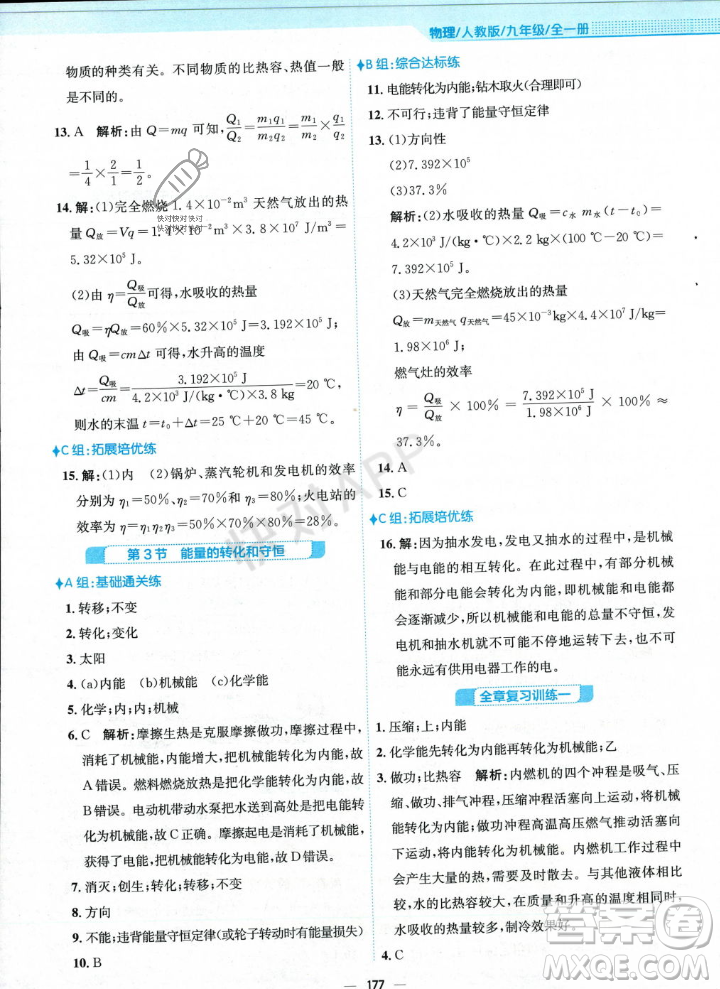 物理/人教版/九年级/全一册
物质的种类有关。不同物质的比热容、热值一般
是不同的。
13. A 解析:由 Q=mq 可知,Q₁/Q₂=m₁q₁/m₂q₂=m₁/m₂×q₁/q₂
=1/4×2/1=1/2。
14. 解:(1)完全燃烧 1.4×10⁻²m³ 天然气放出的热
量 Q放=Vq=1.4×10⁻²m³×3.8×10⁷ J/m³=
5.32×10⁵ J。
(2)由 η=Q吸/Q放 可得,水吸收的热量
Q吸=ηQ放=60%×5.32×10⁵ J=3.192×10⁵ J;
由 Q吸=cmΔt 可得,水升高的温度
Δt=Q吸/cm=3.192×10⁵ J/4.2×10³ J/(kg·℃)×3.8 kg=20 ℃,
则水的末温 t=t₀+Δt=25 ℃+20 ℃=45 ℃。
C组:拓展培优练
15. 解:(1)内 (2)锅炉、蒸汽轮机和发电机的效率
分别为 η₁=50%、η₂=70%和 η₃=80%;火电站的
效率为 η=50%×70%×80%=28%。
第3节 能量的转化和守恒
A组:基础通关练
1. 转移;不变
2. 转化;变化
3. 太阳
4. (a)内能 (b)机械能 (c)化学能
5. 化学;内;内;机械
6. C 解析:摩擦生热是克服摩擦做功,摩擦过程中,
消耗了机械能,内能增大,把机械能转化为内能,故
A错误。燃料燃烧放热是把化学能转化为内能,故
B错误。电动机带动水泵把水送到高处是把电能转
化为机械能,故C正确。摩擦起电消耗了机械能,
获得了电能,把机械能转化为电能,故D错误。
7. 消灭;创生;转化;转移;不变
8. 方向
9. 不能;违背能量守恒定律(或轮子转动时有能量损失)
10. B
B组:综合达标练
11. 电能转化为内能;钻木取火(合理即可)
12. 不可行;违背了能量守恒定律
13. (1)方向性
(2)7.392×10⁵
(3)37.3%
解析:(2)水吸收的热量 Q吸=c水 m水(t-t₀)=
4.2×10³J/(kg·℃)×2.2 kg×(100 ℃-20 ℃)=
7.392×10⁵ J。
(3)天然气完全燃烧放出的热量
Q放=m天然气 q天然气=45×10⁻³kg×4.4×10⁷J/kg=
1.98×10⁶ J。
燃气灶的效率
η=Q吸/Q放×100%=7.392×10⁵ J/1.98×10⁶ J×100%≈
37.3%。
14. A
15. C
C组:拓展培优练
16. 解:因为抽水发电,发电又抽水的过程中,是机械
能与电能的相互转化。在相互转化中,有一部分机
械能和电能会转化为内能,即机械能和电能都
会逐渐减少,所以机械能与电能的总量不守恒,故
发电机和抽水机就可能不停地运转下去,也不可
能永远有供用电器工作的电。
全章复习训练一
1. 压缩;上;内能
2. 化学能先转化为内能再转化为机械能;乙
3. 做功;比热容 解析:内燃机的四个冲程是吸气、压
缩、做功、排气冲程。压缩冲程活塞向上运动压缩
燃料混合物;做功冲程高温高压燃气推动活塞向下
运动;内燃机工作时
会产生大量的热,
4. C
177
快对快对快对
快对快对快对
快对APP
答案圈
MXQE.COM